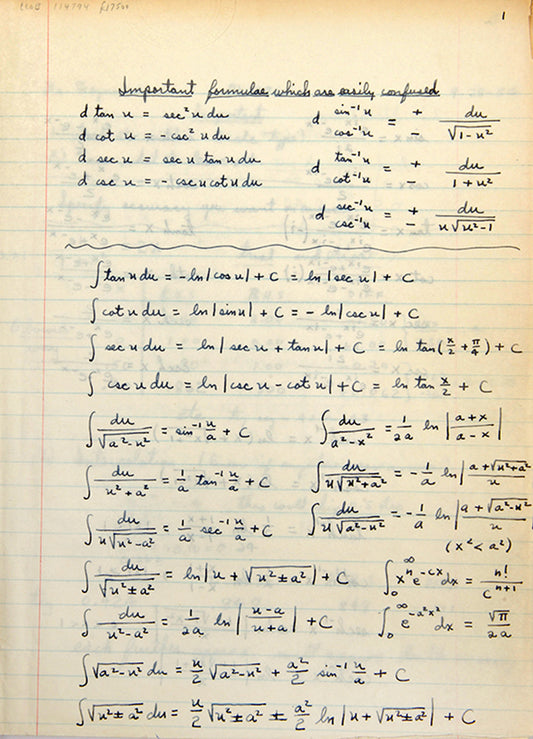 LLOB 114794 £17500
1
Important formulae which are easily confused
d tan u = sec² u du
d sin⁻¹u / cos⁻¹u = + / − du/√(1-u²)
d cot u = -csc² u du
d sec u = sec u tan u du
d tan⁻¹u / cot⁻¹u = + / − du/(1+u²)
d csc u = -csc u cot u du
d sec⁻¹u / csc⁻¹u = + / − du/(u√(u²-1))
∫tan u du = -ln|cos u| + C = ln|sec u| + C
∫cot u du = ln|sin u| + C = - ln|csc u| + C
∫ sec u du = ln|sec u + tan u| + C = ln tan(x/2 + π/4) + C
∫ csc u du = ln|csc u - cot u| + C = ln tan x/2 + C
∫ du/√(a²-u²) = sin⁻¹ u/a + C
∫ du/(a²-x²) = 1/2a ln |(a+x)/(a-x)|
∫ du/(u²+a²) = 1/a tan⁻¹ u/a + C
∫ du/(u√(u²+a²)) = -1/a ln |(a+√(u²+a²))/u
∫ du/(u√(u²-a²)) = 1/a sec⁻¹ u/a + C
∫ du/(u√(a²-u²)) = -1/a ln |(a+√(a²-u²))/u
(x² < a²)
∫ du/√(u²±a²) = ln|u + √(u²±a²)| + C
∫₀^∞ xⁿe^(-cx) dx = n!/c^(n+1)
∫ du/(u²-a²) = 1/2a ln |(u-a)/(u+a)| + C
∫₀^∞ e^(-a²x²) dx = √π/2a
∫√(a²-u²) du = u/2 √(a²-u²) + a²/2 sin⁻¹ u/a + C
∫√(u²±a²) du = u/2 √(u²±a²) ± a²/2 ln |u + √(u²±a²)| + C